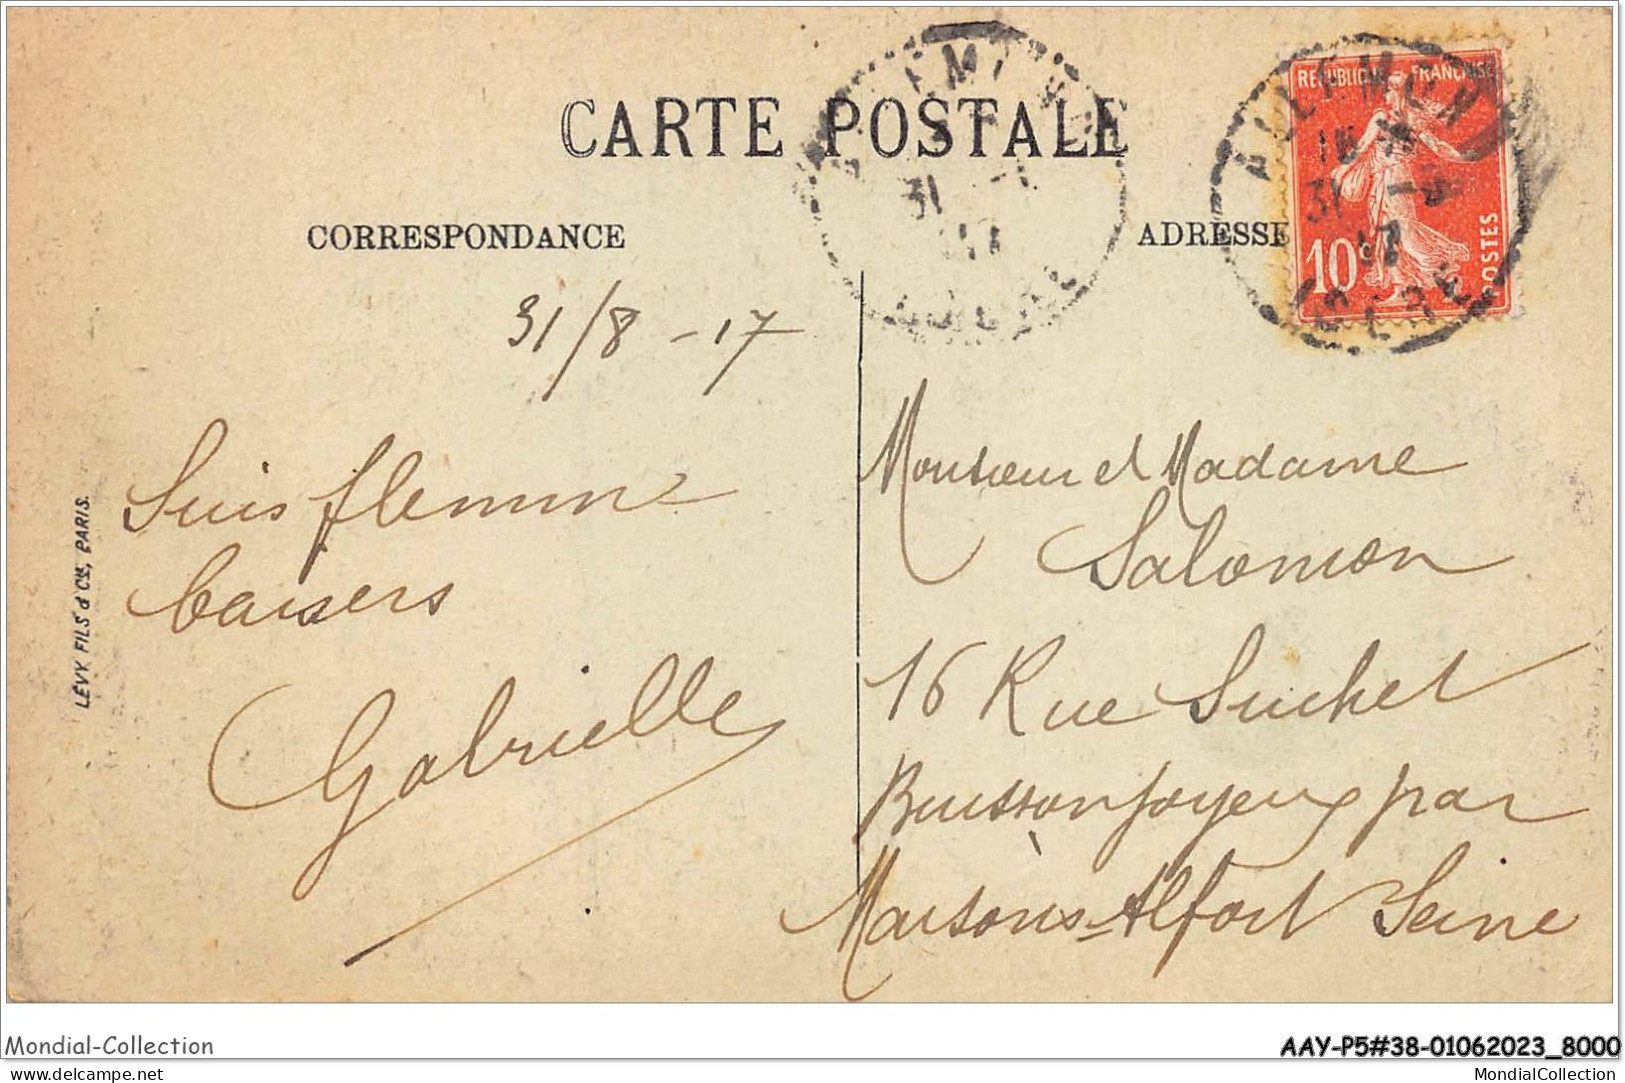 CARTE POSTALE
CORRESPONDANCE
ADRESSE
REPUBLIQUE FRANÇAISE
10c
POSTES
31
17
31/8 - 17
Suis flemme
baisers
Gabrielle
LÉVY FILS & Cie, PARIS.
Monsieur et Madame
Salomon
16 Rue Suchet
Buisson joyeux par
Maisons-Alfort Seine
Mondial-Collection
AAY-P5#38-01062023_8000
delcampe.net
MondialCollection